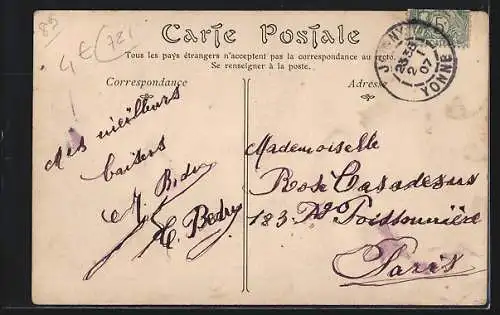 85
4E (721
Carte Postale
Tous les pays étrangers n'acceptent pas la correspondance au recto.
Se renseigner à la poste.
Correspondance
Adresse
JOIGNY
2 1 07
YONNE
Mes meilleurs
baisers
Mademoiselle
Rose Casadesus
183 Fg Poissonnière
Paris